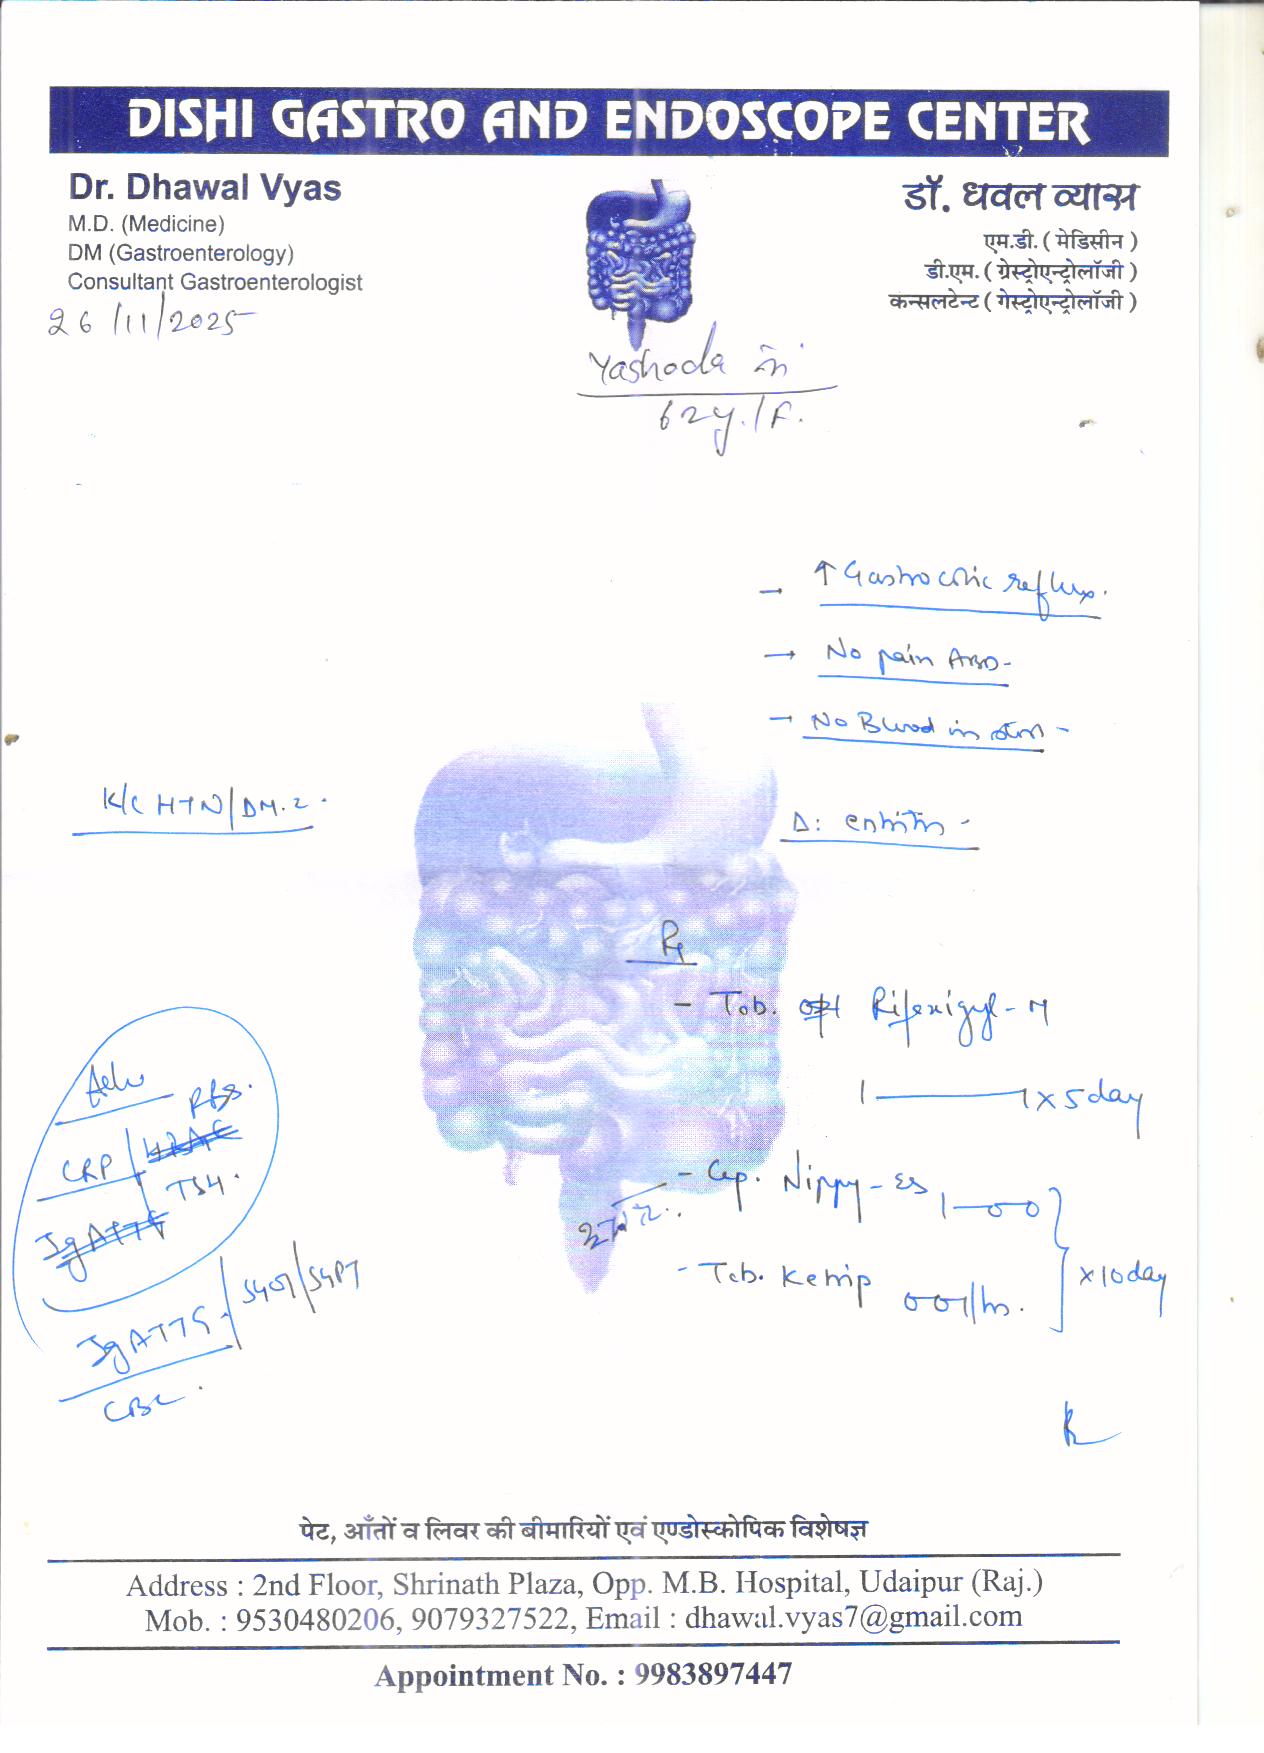 DISHI GASTRO AND ENDOSCOPE CENTER
Dr. Dhawal Vyas
M.D. (Medicine)
DM (Gastroenterology)
Consultant Gastroenterologist
डॉ. धवल व्यास
एम.डी. ( मेडिसीन )
डी.एम. ( ग्रेस्ट्रोएन्ट्रोलॉजी )
कन्सलटेन्ट ( गेस्ट्रोएन्ट्रोलॉजी )
26/11/2025
Yashoda
62y./F.
→ ↑ Gastrocolic reflux.
→ No pain ABD-
→ No Blood in
K/C HTN/DM.2.
Δ: enteritis -
Rx
- Tab. Rifexigyl-M
1——1 x 5 day
- Cap. Nippy-ES 1—0—0
- Tab. 0 0 1/hs.
} x 10 day
Adv
RBS.
CRP
TSH.
IgATTG. SGOT/SGPT
CBC.
पेट, आँतों व लिवर की बीमारियों एवं एण्डोस्कोपिक विशेषज्ञ
Address : 2nd Floor, Shrinath Plaza, Opp. M.B. Hospital, Udaipur (Raj.)
Mob. : 9530480206, 9079327522, Email : dhawal.vyas7@gmail.com
Appointment No. : 9983897447